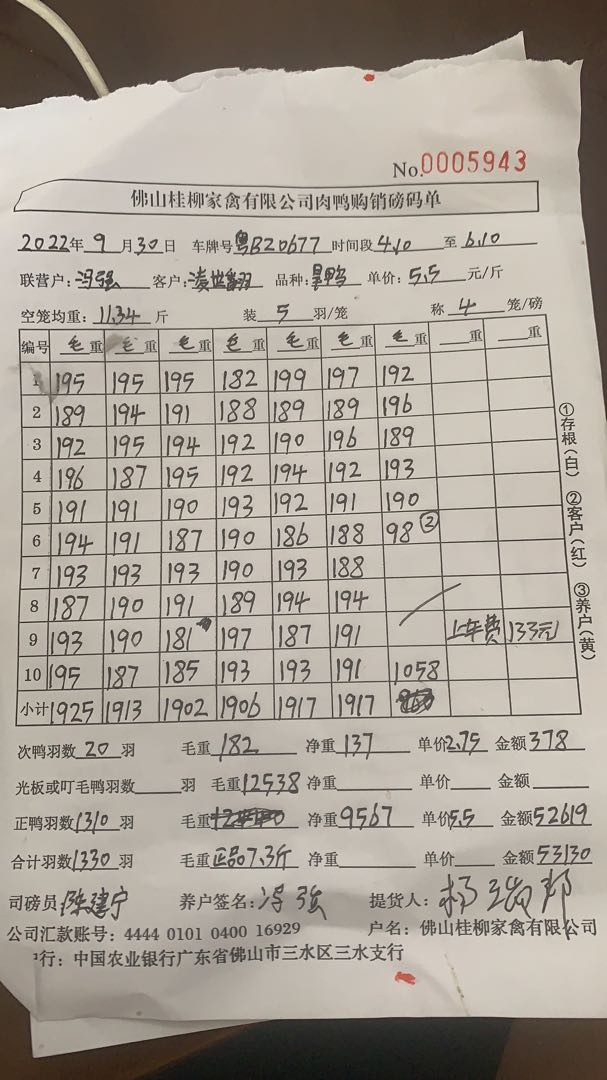 No.0005943
佛山桂柳家禽有限公司肉鸭购销磅码单
2022年 9 月 30 日 车牌号 粤BZ0677 时间段 4.10 至 6.10
联营户: 冯强 客户: 品种: 鸭 单价: 5.5 元/斤
空笼均重: 11.34 斤 装 5 羽/笼 称 4 笼/磅
编号 毛重 毛重 毛重 毛重 毛重 毛重 毛重 重 重
1 195 195 195 182 199 197 192
2 189 194 191 188 189 189 196
3 192 195 194 192 190 196 189
4 196 187 195 192 194 192 193
5 191 191 190 193 192 191 190
6 194 191 187 190 186 188 98 ②
7 193 193 193 190 193 188
8 187 190 191 189 194 194
9 193 190 181 197 187 191 上车费 133元
10 195 187 185 193 193 191 1058
小计 1925 1913 1902 1906 1917 1917
①存根(白) ②客户(红) ③养户(黄)
次鸭羽数 20 羽 毛重 182 净重 137 单价 2.75 金额 378
光板或叮毛鸭羽数 羽 毛重 12538 净重 单价 金额
正鸭羽数 1310 羽 毛重 净重 9567 单价 5.5 金额 52619
合计羽数 1330 羽 毛重 正品7.3斤 净重 单价 金额 53130
司磅员: 陈建宁 养户签名: 冯强 提货人:
公司汇款账号: 4444 0101 0400 16929 户名: 佛山桂柳家禽有限公司
行: 中国农业银行广东省佛山市三水区三水支行